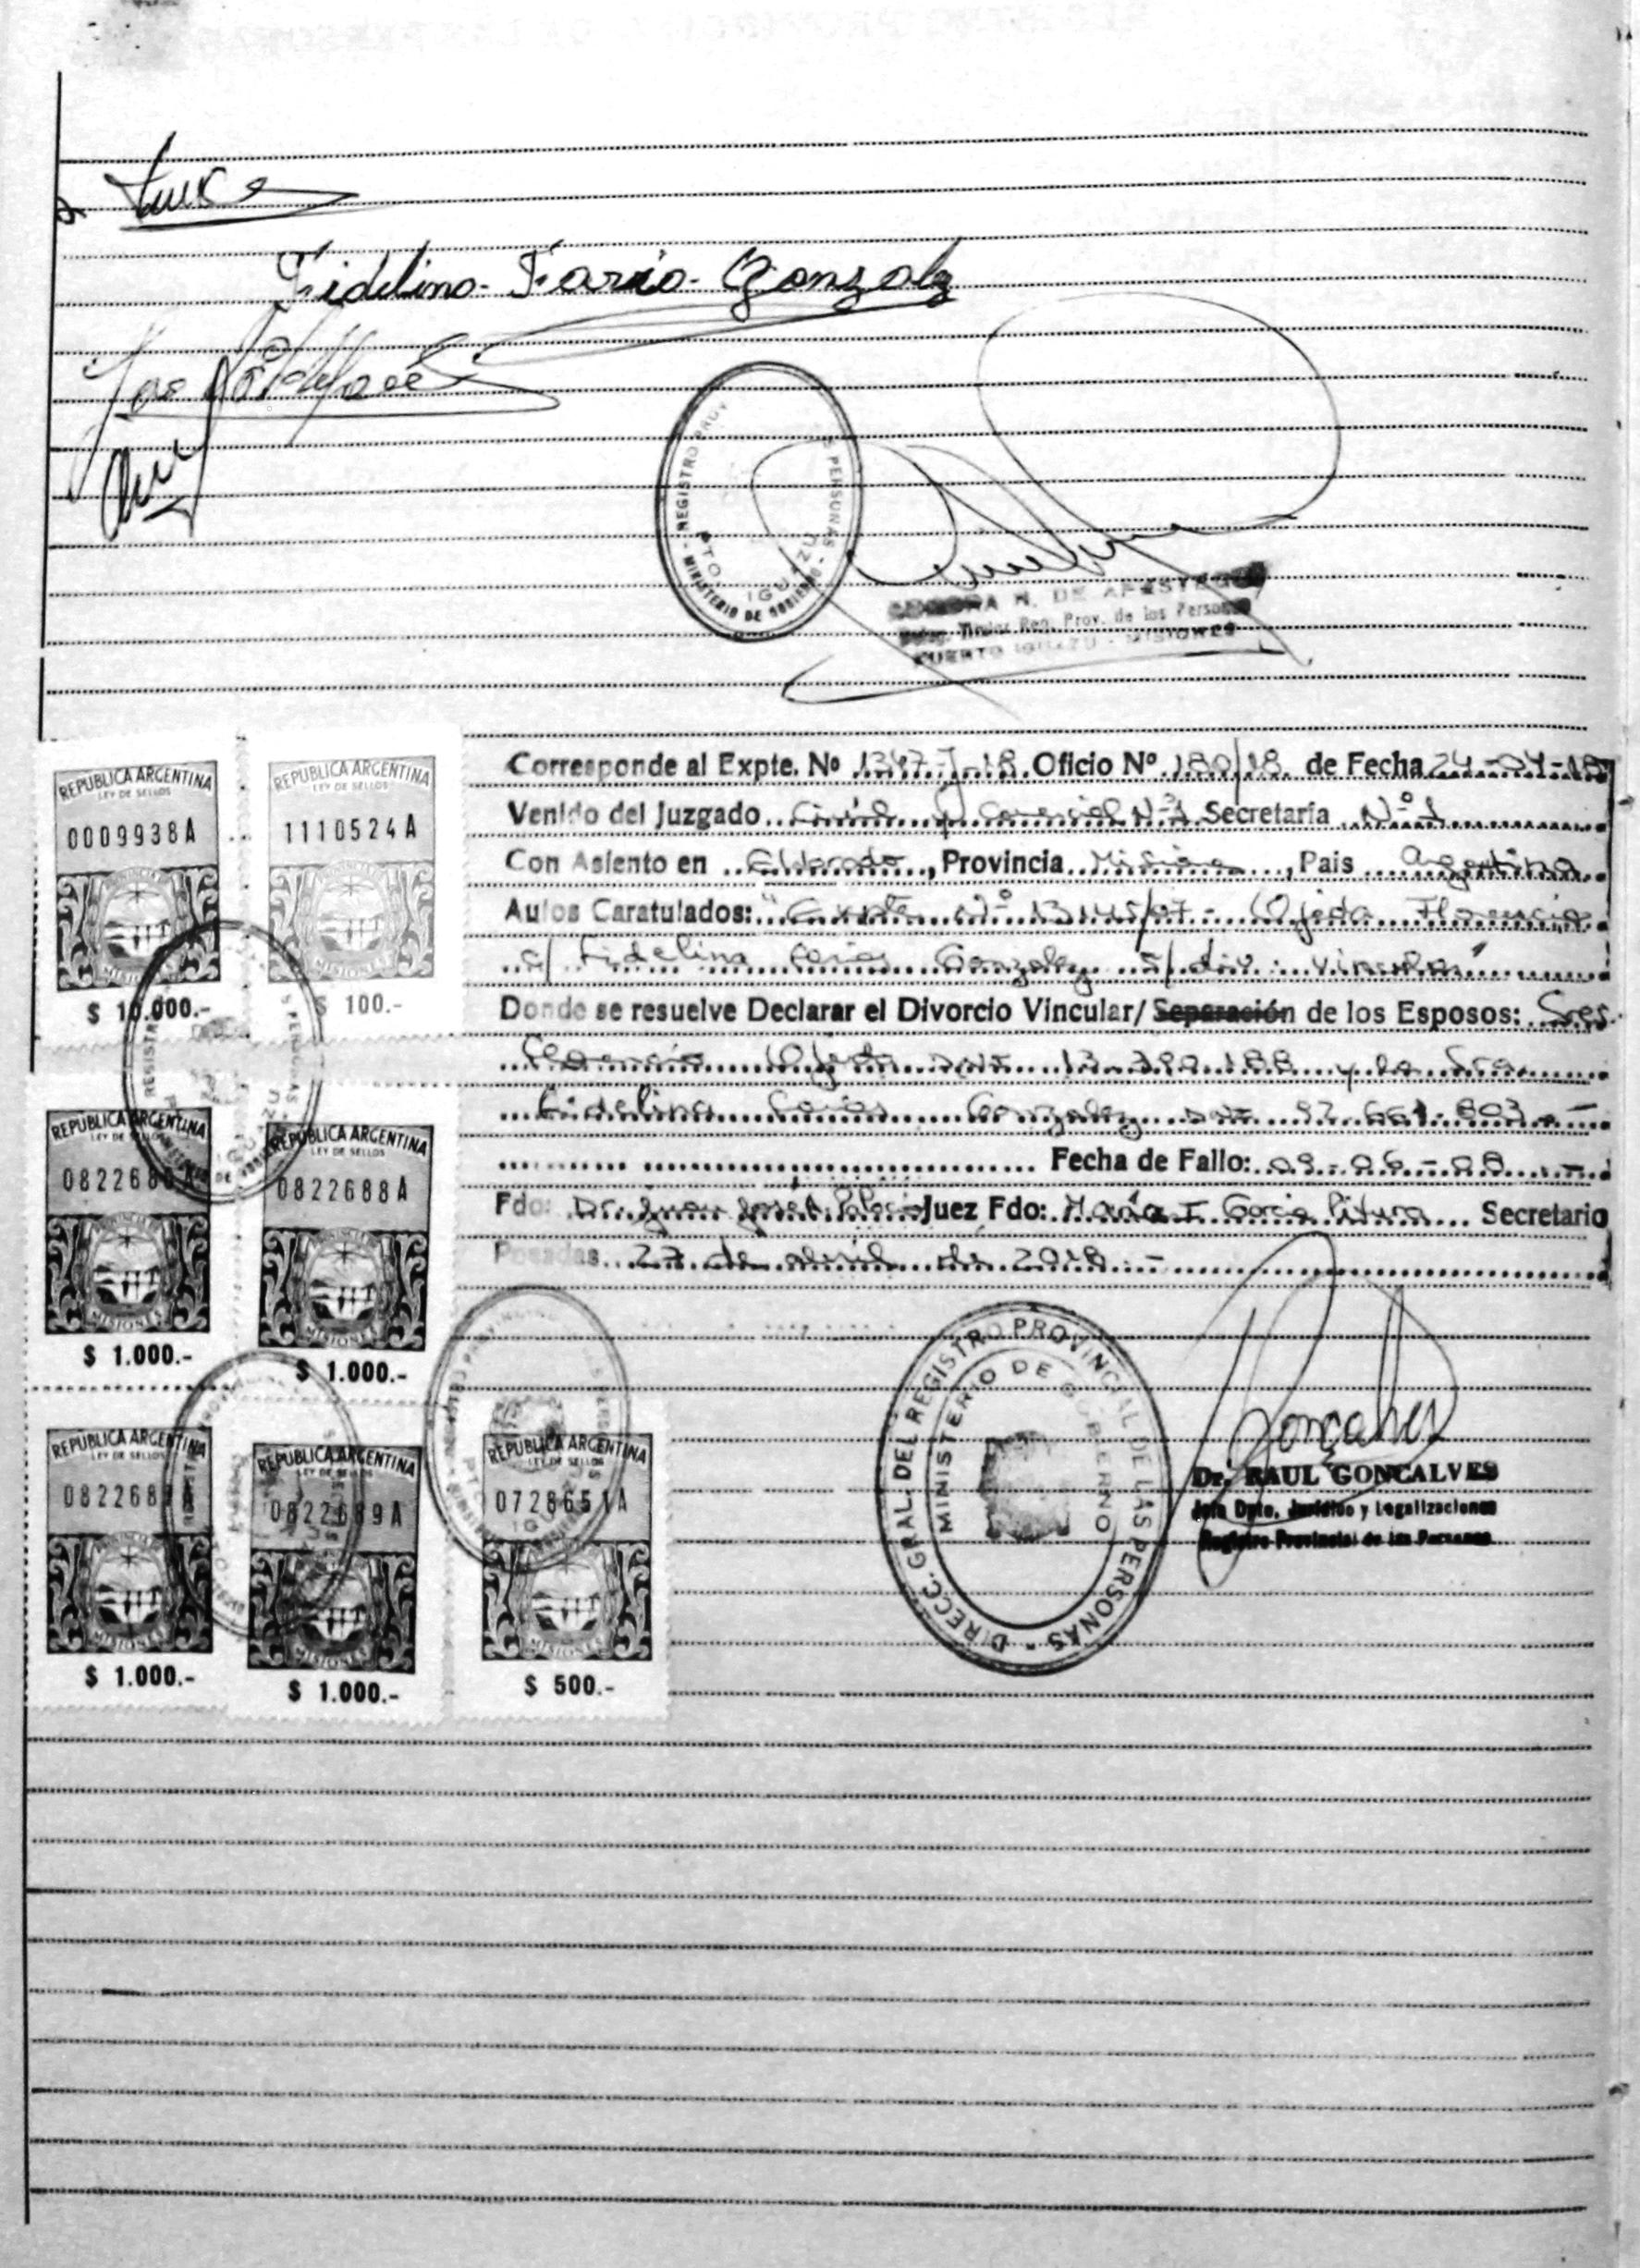 Fidelina Farias Gonzalez
REGISTRO PROV
S PERSONAS
PTO IGUAZU
MINISTERIO DE GOBIERNO
N. DE APESTEGUI
Titular Reg. Prov. de las Personas
PUERTO IGUAZU - MISIONES
REPUBLICA ARGENTINA
LEY DE SELLOS
0009938A
MISIONES
$ 10.000.-
REPUBLICA ARGENTINA
LEY DE SELLOS
1110524A
MISIONES
$ 100.-
Corresponde al Expte. Nº 1347-J-18 Oficio Nº 180/18 de Fecha 24-04-18
Venido del Juzgado Civil y Comercial Nº 1 Secretaría Nº 1
Con Asiento en Eldorado, Provincia Misiones, Pais Argentina
Autos Caratulados: "Expte Nº /07 - Ojeda Florencio
c/ Fidelina Farias Gonzalez s/ div. vincular"
Donde se resuelve Declarar el Divorcio Vincular/ Separación de los Esposos: Sres.
Florencio Ojeda DNI 188 y la Sra.
Fidelina Farias Gonzalez DNI
Fecha de Fallo: 09-06-08 -
Fdo: Dr. Juan José Juez Fdo: María T Garcia Secretario
Posadas 27 de abril de 2018 -
REPUBLICA ARGENTINA
LEY DE SELLOS
MISIONES
$ 1.000.-
REPUBLICA ARGENTINA
LEY DE SELLOS
0822688A
MISIONES
$ 1.000.-
REPUBLICA ARGENTINA
LEY DE SELLOS
MISIONES
$ 1.000.-
REPUBLICA ARGENTINA
LEY DE SELLOS
0822689A
MISIONES
$ 1.000.-
REPUBLICA ARGENTINA
0728651A
MISIONES
$ 500.-
DIRECC. GRAL. DEL REGISTRO PROVINCIAL DE LAS PERSONAS
MINISTERIO DE GOBIERNO
Gonçalves
Dr. RAUL GONCALVES
Jefe Dpto. Jurídico y Legalizaciones
Registro Provincial de las Personas